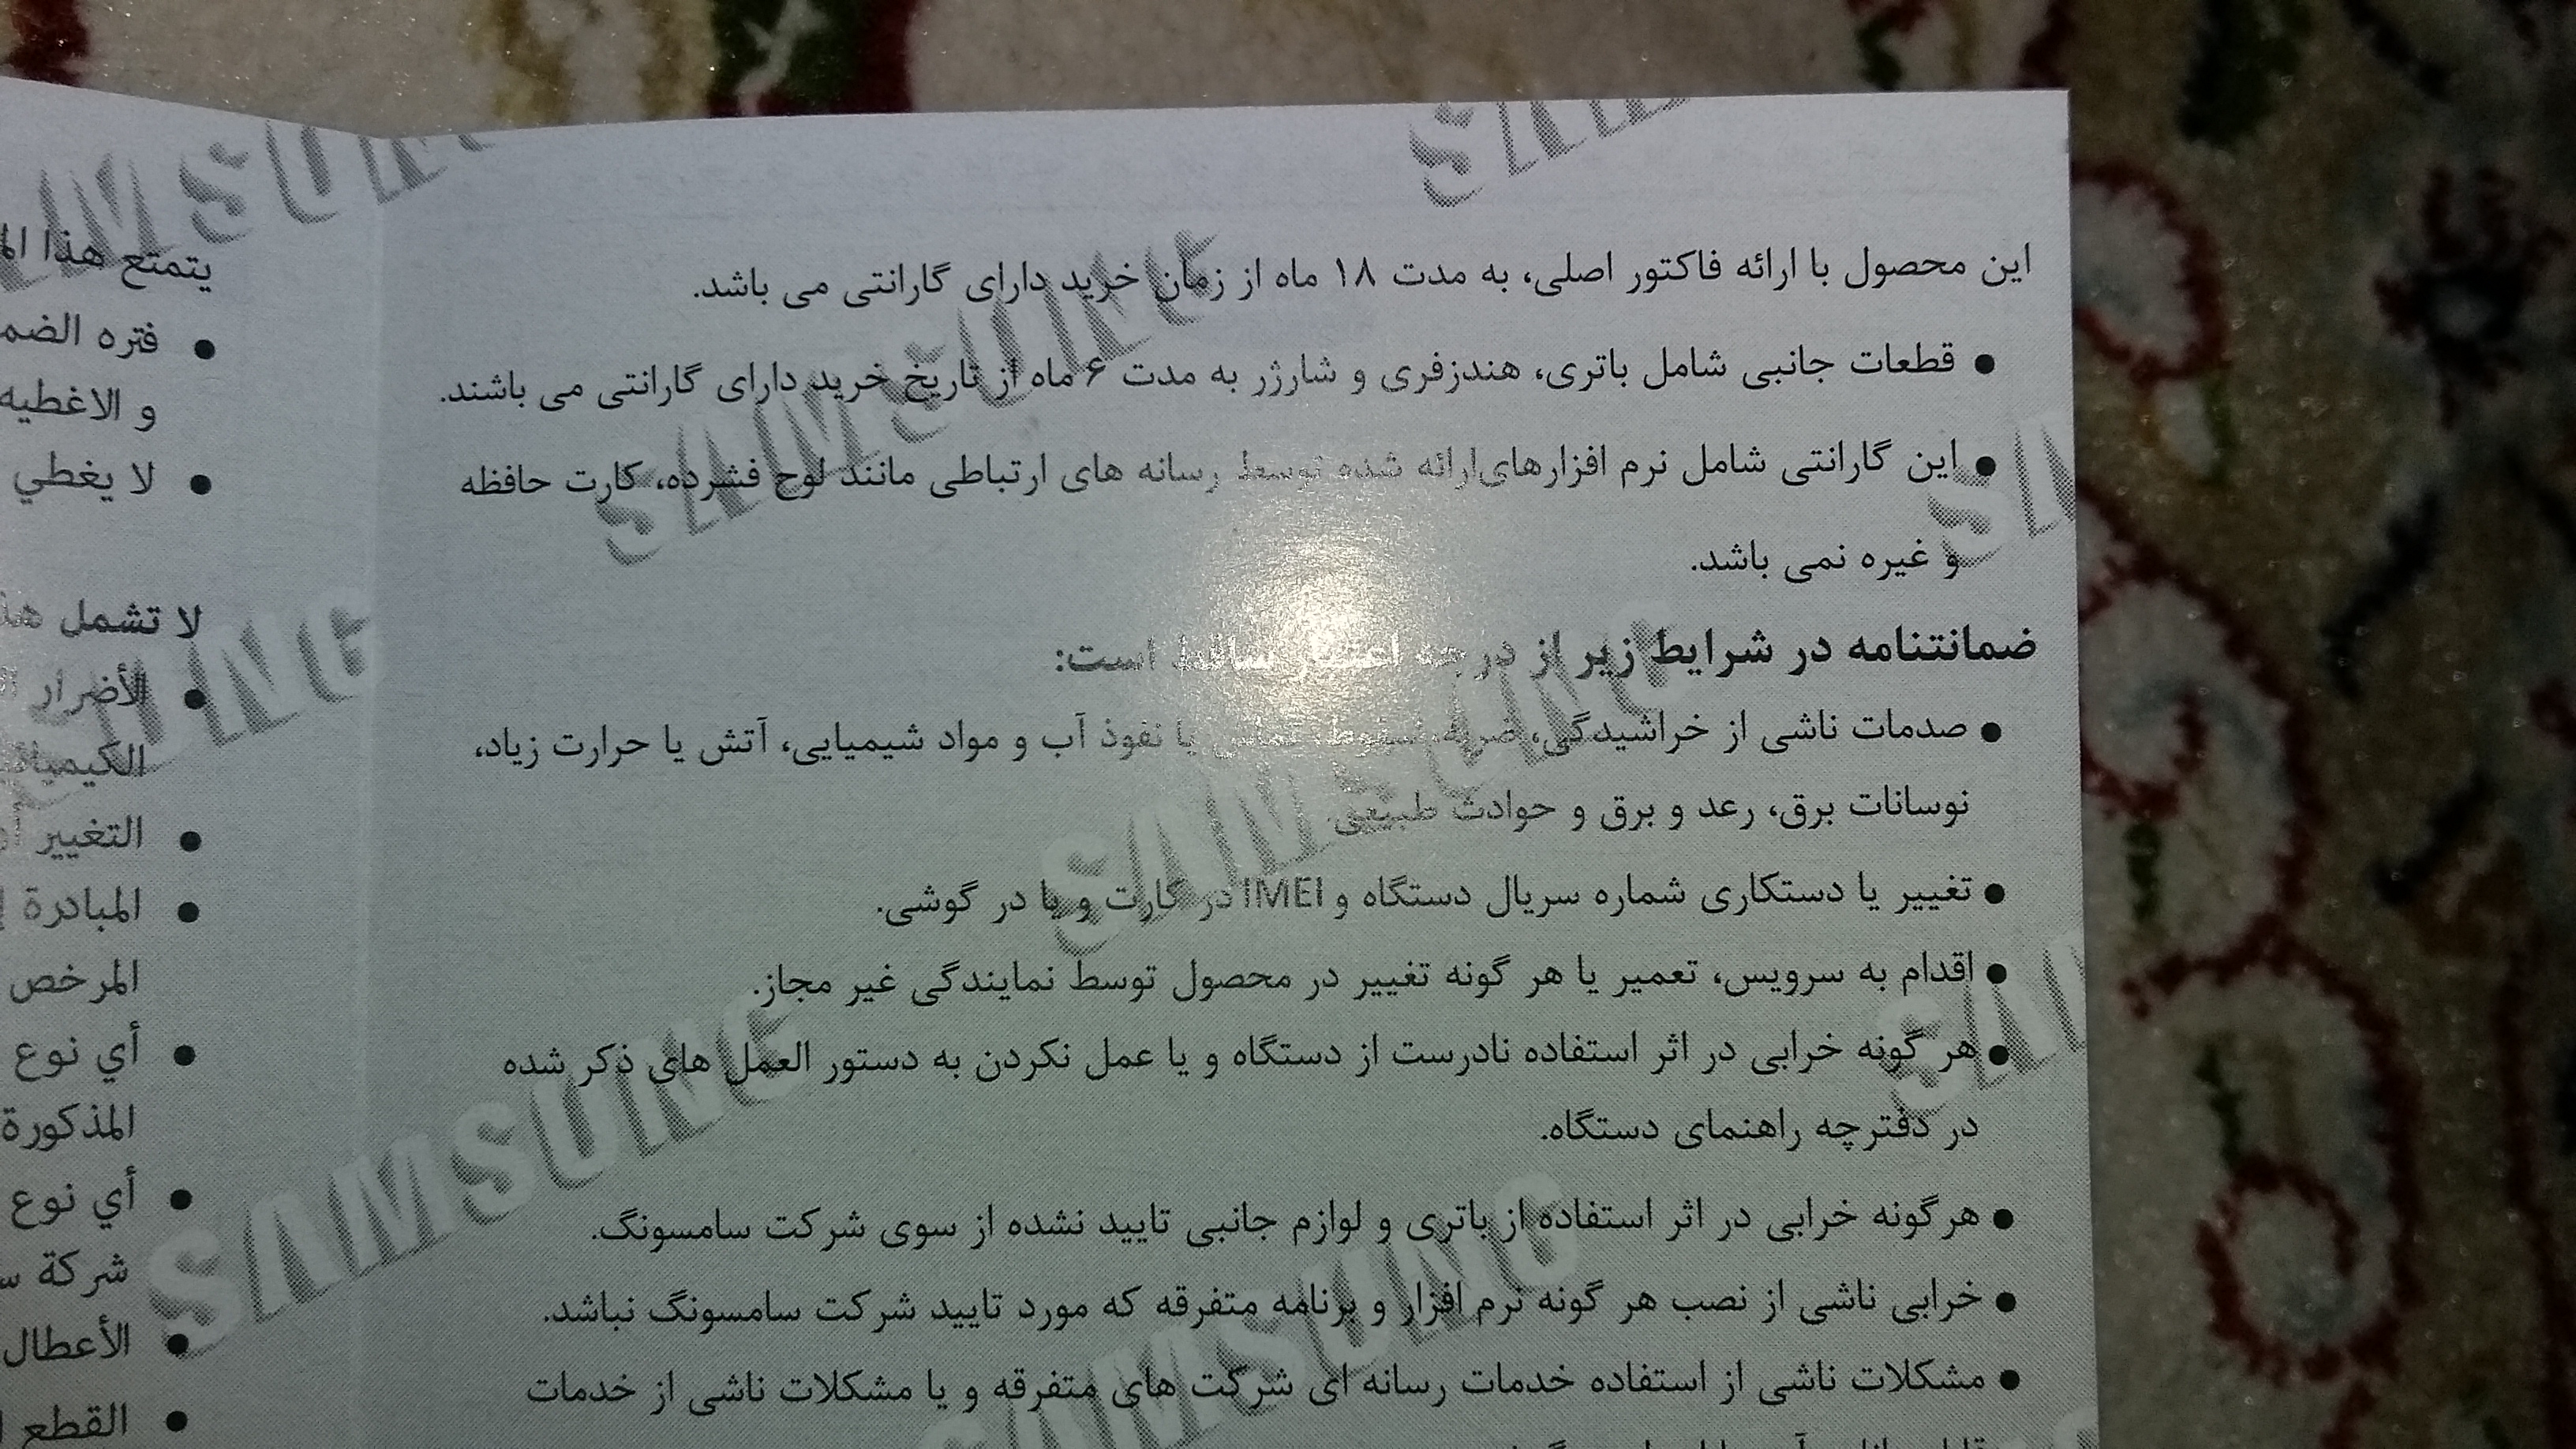 این محصول با ارائه فاکتور اصلی، به مدت ۱۸ ماه از زمان خرید دارای گارانتی می باشد.
● قطعات جانبی شامل باتری، هندزفری و شارژر به مدت ۶ ماه از تاریخ خرید دارای گارانتی می باشند.
● این گارانتی شامل نرم افزارهای ارائه شده توسط رسانه های ارتباطی مانند لوح فشرده، کارت حافظه
و غیره نمی باشد.
ضمانتنامه در شرایط زیر از درجه اعتبار ساقط است:
● صدمات ناشی از خراشیدگی، ضربه، سقوط، تماس یا نفوذ آب و مواد شیمیایی، آتش یا حرارت زیاد،
نوسانات برق، رعد و برق و حوادث طبیعی
● تغییر یا دستکاری شماره سریال دستگاه و IMEI در کارت و یا در گوشی.
● اقدام به سرویس، تعمیر یا هر گونه تغییر در محصول توسط نمایندگی غیر مجاز.
● هر گونه خرابی در اثر استفاده نادرست از دستگاه و یا عمل نکردن به دستور العمل های ذکر شده
در دفترچه راهنمای دستگاه.
● هرگونه خرابی در اثر استفاده از باتری و لوازم جانبی تایید نشده از سوی شرکت سامسونگ.
● خرابی ناشی از نصب هر گونه نرم افزار و برنامه متفرقه که مورد تایید شرکت سامسونگ نباشد.
● مشکلات ناشی از استفاده خدمات رسانه ای شرکت های متفرقه و یا مشکلات ناشی از خدمات
یتمتع هذا
● فتره
و الاغطیه
● لا یغطي
لا تشمل
● الأضرار
● التغییر
● المبادرة
المرخص
● أي نوع
المذکورة
● أي نوع
شرکة
● الأعطال
● القطع
SAMSUNG
SAMSUNG
SAMSUNG
SAMSUNG